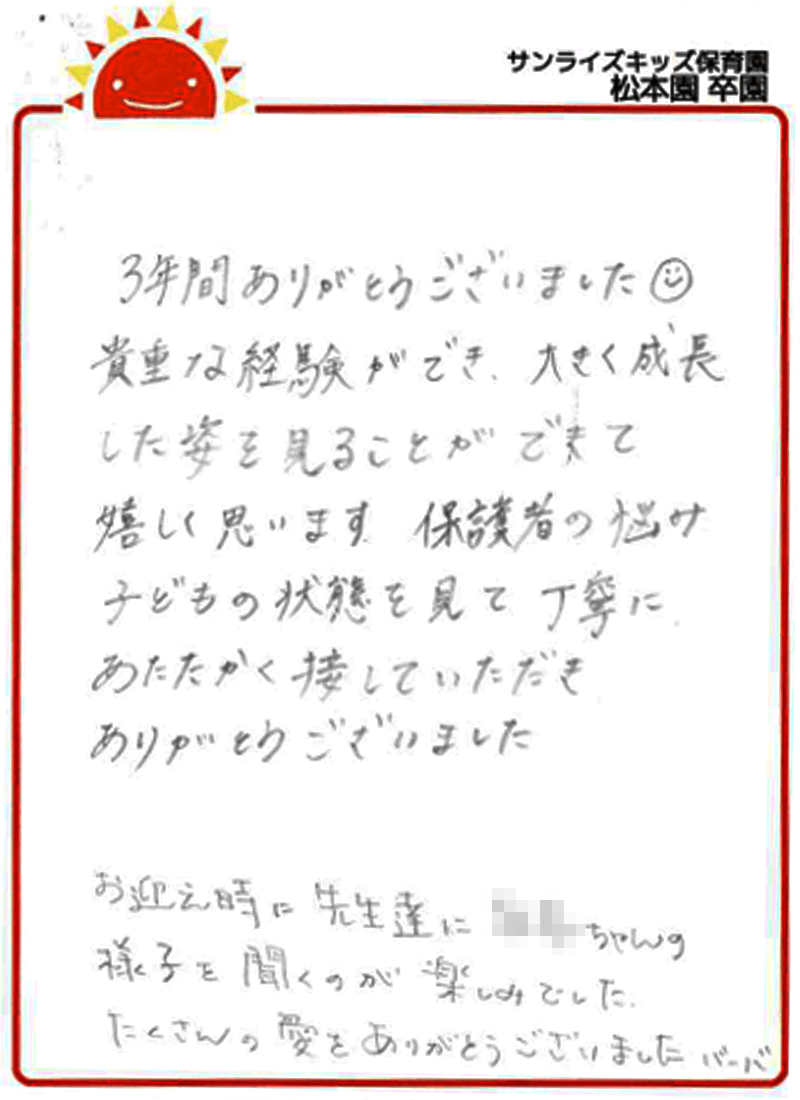 サンライズキッズ保育園
松本園 卒園
3年間ありがとうございました
貴重な経験ができ、大きく成長
した姿を見ることができて
嬉しく思います 保護者の悩み
子どもの状態を見て丁寧に、
あたたかく接していただき
ありがとうございました
お迎え時に先生達に ちゃんの
様子を聞くのが楽しみでした。
たくさんの愛をありがとうございました バーバ